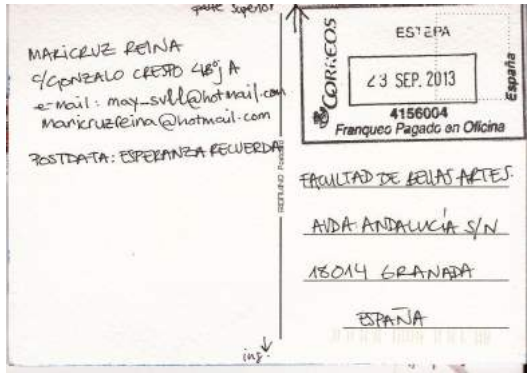 parte superior
MARICRUZ REINA
C/GONZALO CRESPO 48ºj A
e-mail: may_svll@hotmail.com
maricruzreina@hotmail.com
POSTDATA: ESPERANZA RECUERDA
CORREOS
ESTEPA
23 SEP. 2013
España
4156004
Franqueo Pagado en Oficina
FACULTAD DE BELLAS ARTES.
AVDA ANDALUCÍA S/N
18014 GRANADA
ESPAÑA